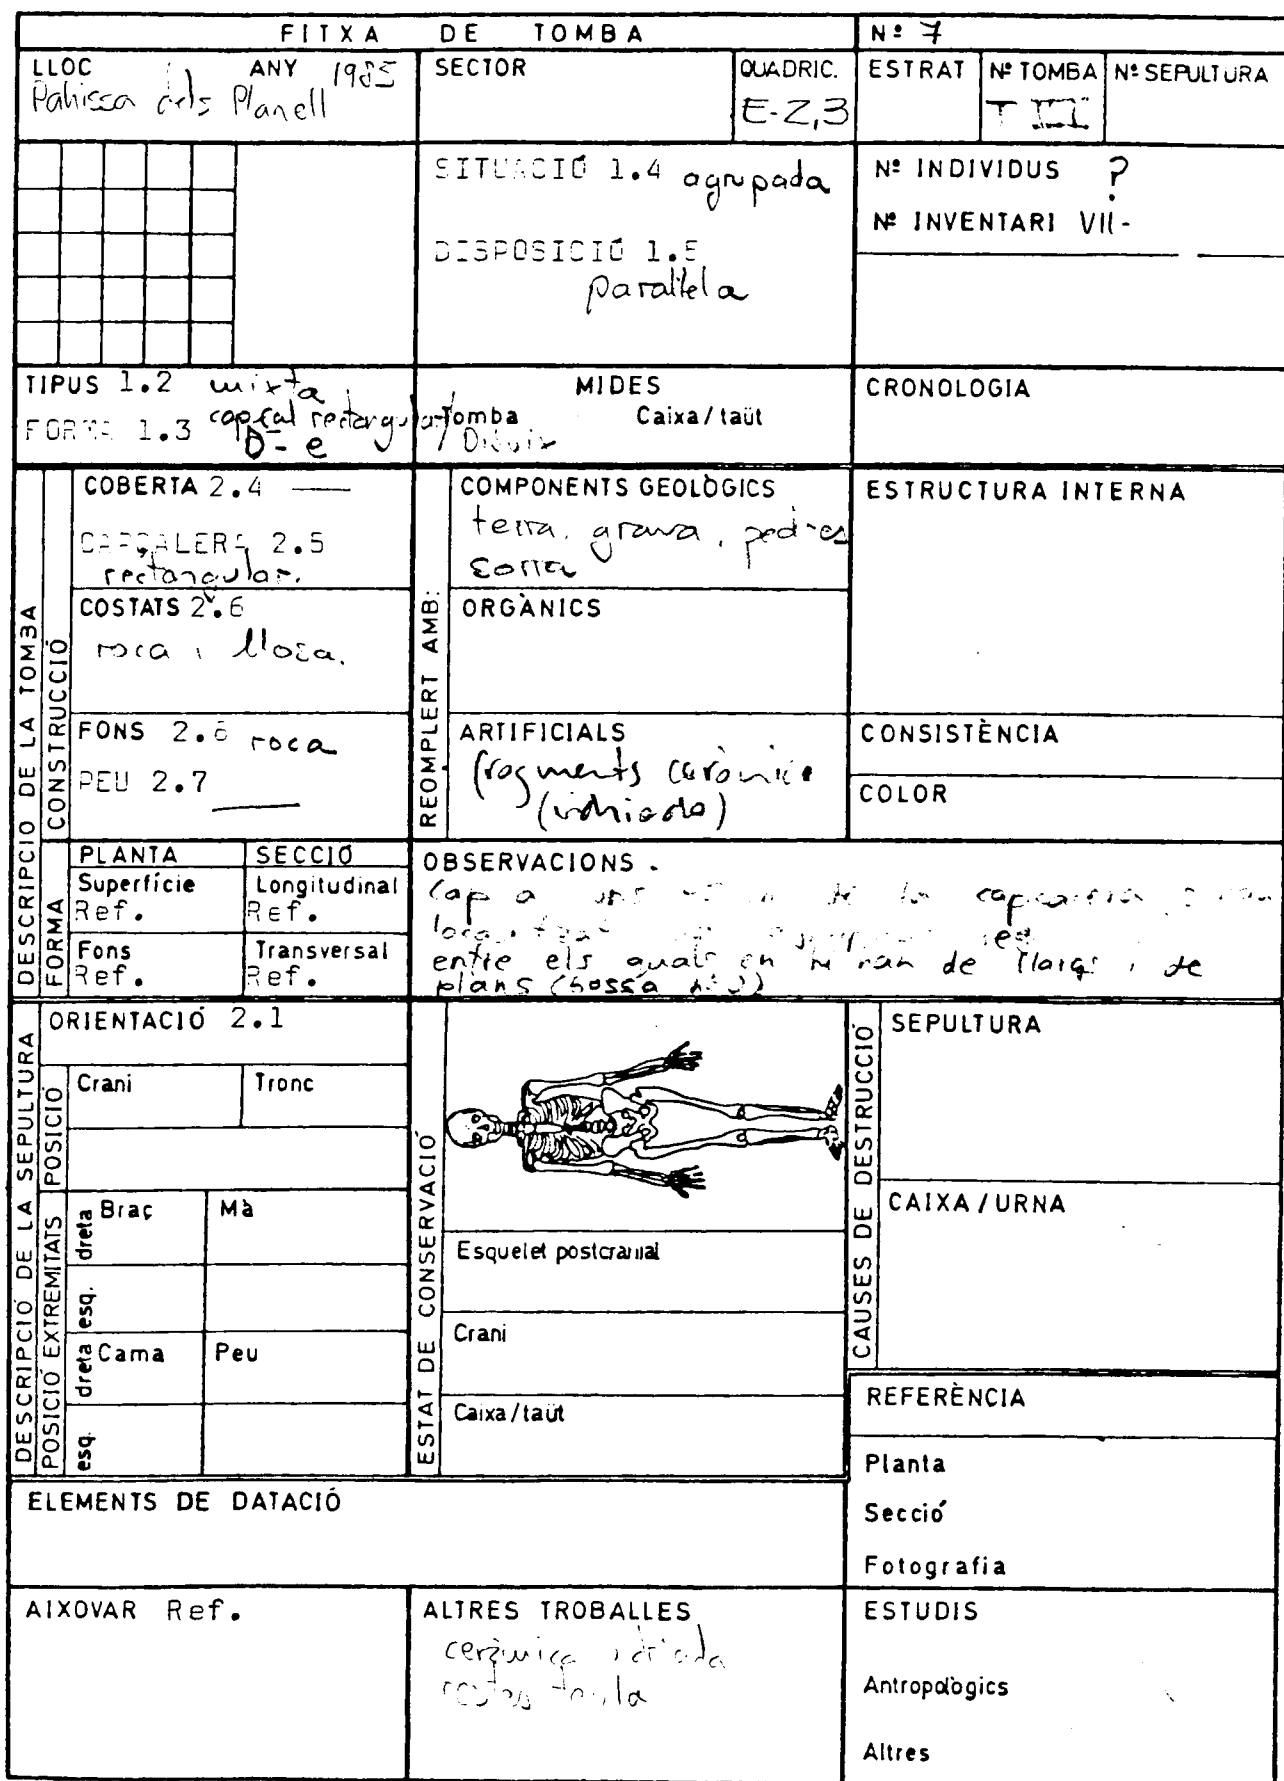 FITXA DE TOMBA
Nº 7
LLOC
ANY 1985
Pahissa dels Planell
SECTOR
QUADRIC.
E-2,3
ESTRAT
Nº TOMBA
T III
Nº SEPULTURA
SITUACIÓ 1.4 agrupada
DISPOSICIÓ 1.5
paral·lela
Nº INDIVIDUS ?
Nº INVENTARI VII-
TIPUS 1.2 mixta
FORMA 1.3 capçal rectangular
D-e
MIDES
Tomba
Caixa/taüt
Dibuix
CRONOLOGIA
DESCRIPCIÓ DE LA TOMBA
CONSTRUCCIÓ
COBERTA 2.4 —
CAPÇALERA 2.5
rectangular.
COSTATS 2.6
roca i llosa.
FONS 2.6 roca
PEU 2.7 —
REOMPLERT AMB:
COMPONENTS GEOLÒGICS
terra, grava, pedres
sorra
ORGÀNICS
ARTIFICIALS
fragments ceràmica
(vidriada)
ESTRUCTURA INTERNA
CONSISTÈNCIA
COLOR
FORMA
PLANTA
SECCIÓ
Superfície
Ref.
Longitudinal
Ref.
Fons
Ref.
Transversal
Ref.
OBSERVACIONS.
Cap a uns de la capçalera
entre els quals en hi han de llargs i de
plans (bossa nº 3)
DESCRIPCIÓ DE LA SEPULTURA
ORIENTACIÓ 2.1
POSICIÓ
Crani
Tronc
POSICIÓ EXTREMITATS
dreta
Braç
Mà
esq.
dreta
Cama
Peu
esq.
ESTAT DE CONSERVACIÓ
Esquelet postcranial
Crani
Caixa/taüt
CAUSES DE DESTRUCCIÓ
SEPULTURA
CAIXA/URNA
REFERÈNCIA
Planta
Secció
Fotografia
ELEMENTS DE DATACIÓ
AIXOVAR Ref.
ALTRES TROBALLES
ceràmica vidriada
restes teula
ESTUDIS
Antropològics
Altres